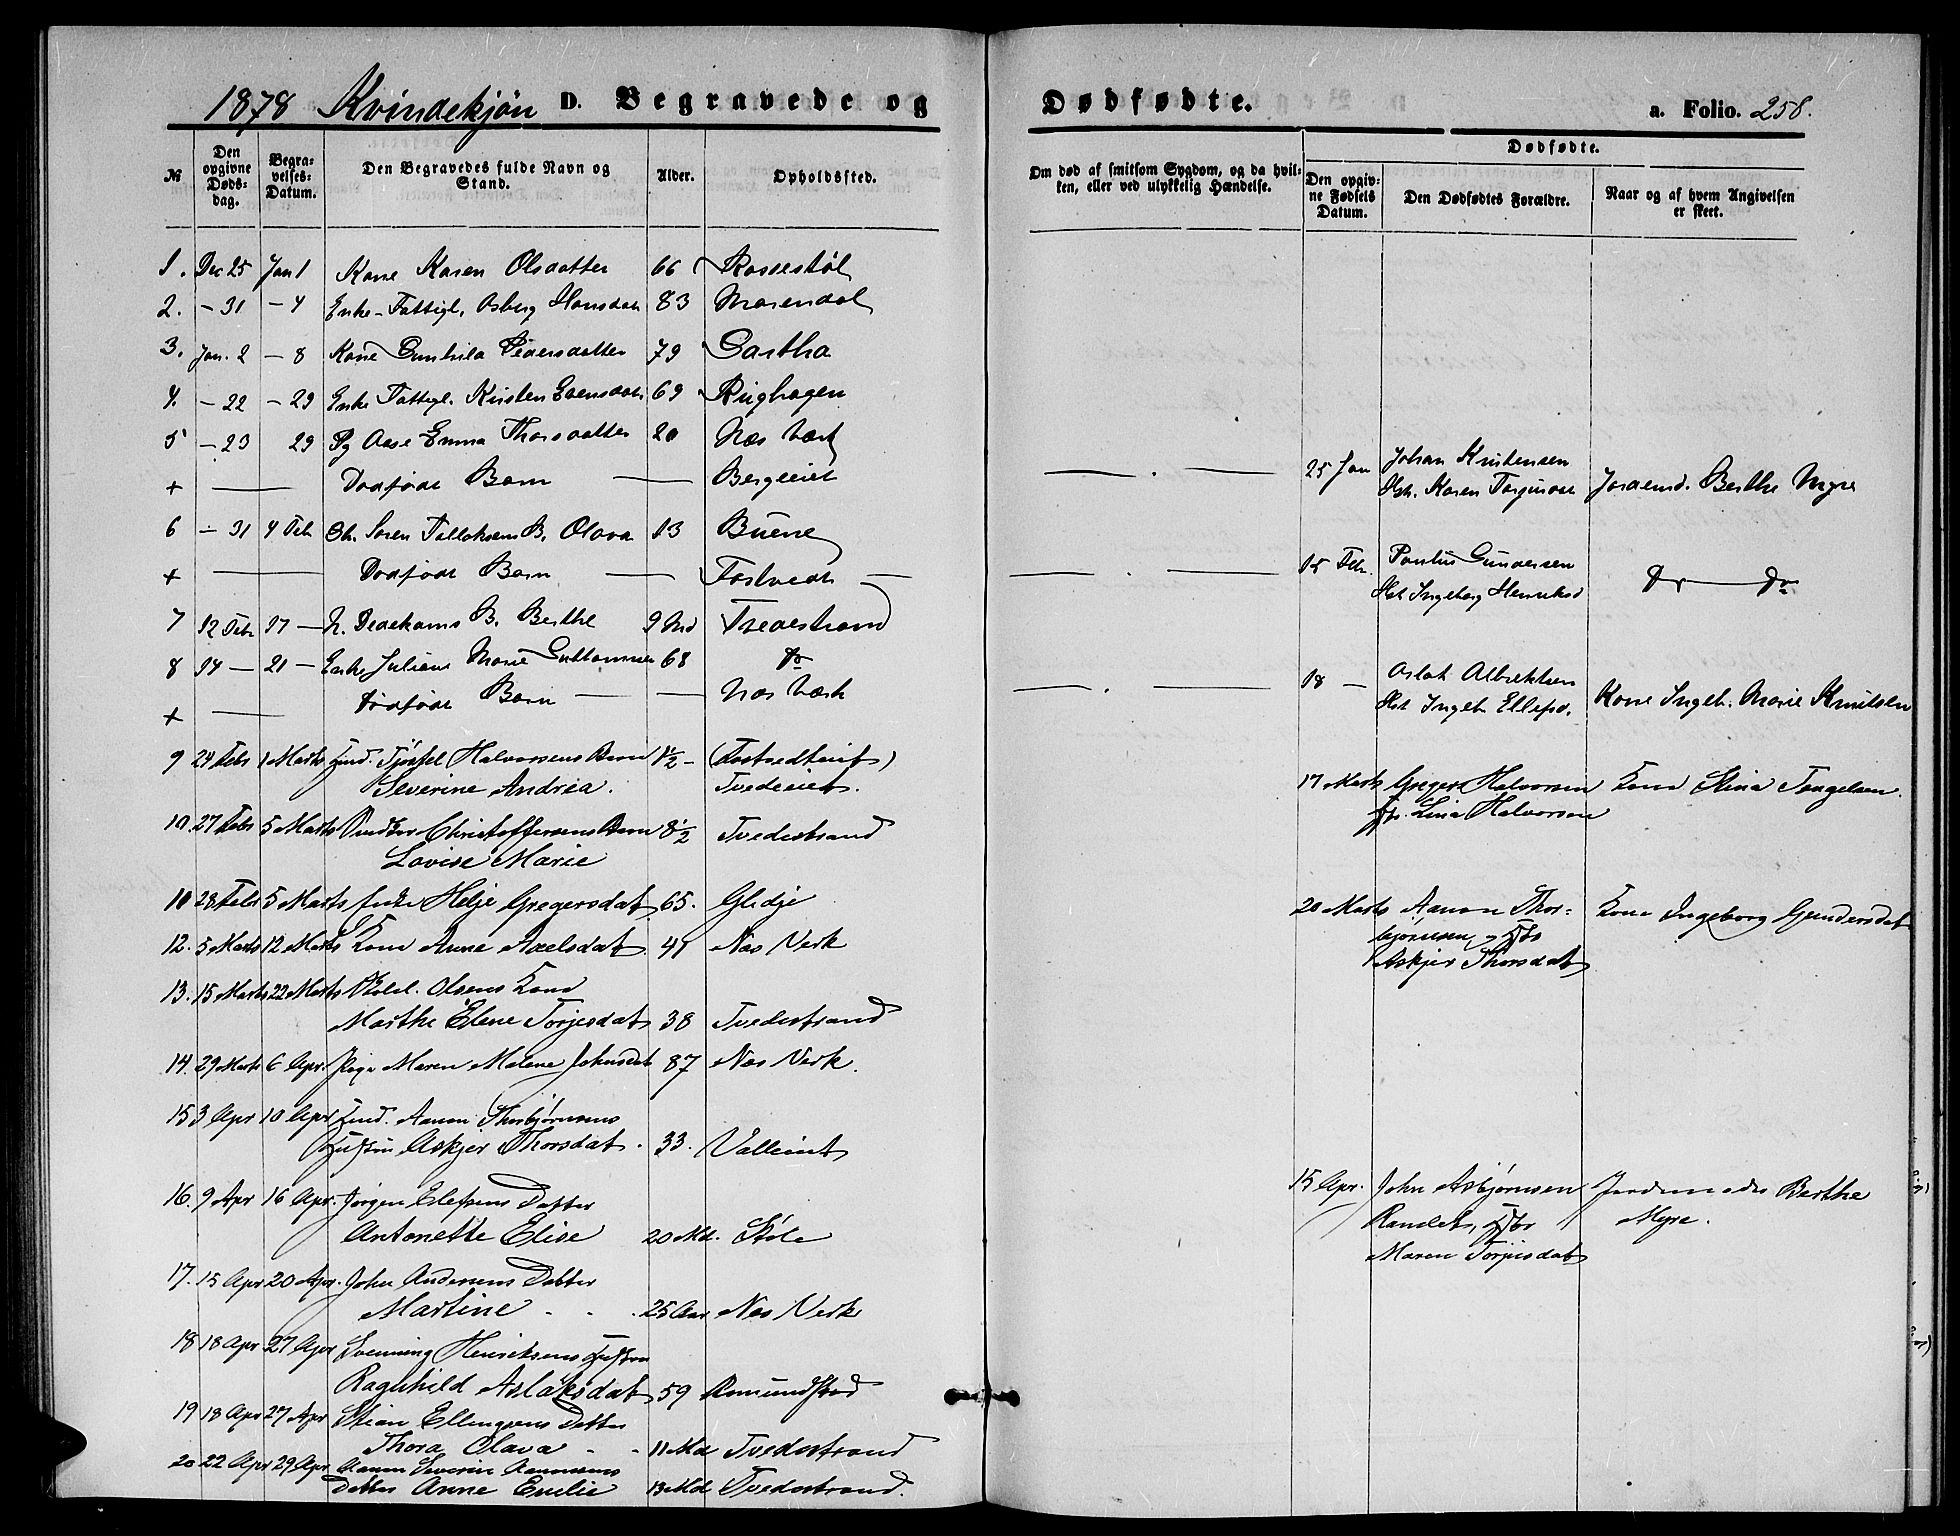 1878 Kvindekjön D. Begravede og Dødfødte. a. Folio. 258.
№ Den opgivne Døds-dag. Begra-velses-Datum. Den Begravedes fulde Navn og Stand. Alder. Opholdssted.
Om død af smitsom Sygdom, og da hvil-ken, eller ved ulykkelig Hændelse. Dødfødte. Den opgiv-ne Fødsels Datum. Den Dødfødtes Forældre. Naar og af hvem Angivelsen er skeet.
1. Dec 25 Jan 1 Kone Karen Olsdatter 66 Rossestøl
2. — 31 — 4 Enke-Fattigl. Asberg Hansdatr 83 Mosendal
3. Jan. 2 — 8 Kone Gunhild Pedersdatter 79 Gartha
4. — 22 — 29 Enke Fattigl. Kirsten Evensdatr 69 Rughagen
5 — 23 29 Pg Aase Emma Thorsdatter 20 Næs Værk
+ — Dødfødt Barn — Bergeeiet
25 Jan Johan Kristensen
Hst. Karen Jordemd. Berthe Myre
6 — 31 4 Febr Str. Søren Tellefsens B. Olava 13 Buene
+ — Dødfødt Barn — Fostvedt —
15 Febr. Paulus Gundersen
Hst Ingeborg Henriksd Do — Do
7 12 Febr 17 — N. Dedekams B. Berthe 9 Md Tvedestrand
8 14 — 21 — Enke Juliane Marie Guttormsen 68 Do
+ — Dødfødt Barn — — Næs Værk
18 — Aslak Albrektsen
Hst Ingeb. Ellefsd. Kone Ingeb. Marie Knutsen
9 24 Febr 1 Marts Inds. Tjöstel Halvorsens Barn 1½ — (Fostvedteiet)
Severine Andrea. Tvedeeiet.
17 Marts Greger Halvorsen Kone Stina Tengelsen.
Hst. Lina Halvorsen
10 27 Febr 5 Marts Christoffersens Barn 8½ Tvedestrand
Lovise Marie
10 28 Febr 5 Marts Enke Helje Gregersdat 65. Gledje
20 Marts Aanon Thor-
bjørnsen og Hst
Askjer Thorsdat Kone Ingeborg Gundersdat
12. 5 Marts 12 Marts Kone Anne Axelsdat. 41 Næs Verk
13. 15 Marts 22 Marts Olsens Kone
Marthe Elene Torjesdat 38 Tvedestrand
14. 29 Marts 6 Apr. Pige Maren Malene Johnsdat 87 Næs Verk.
15 3 Apr 10 Apr Inds. Aanon Thorbjørnsens
Hustru Askjer Thorsdat. 33. Valleeiet
16. 9 Apr 16 Apr. Jørgen Elefsens Datter
Antonette Elise 20 Md. Støle
15 Apr. John Asbjørnsen Jordemoder Berthe
Ramlet, Hst Myre.
Maren Torjusdat
17. 15 Apr 20 Apr. John Andersens Datter
Martine - - . 25 Aar Næs Verk
18 18 Apr 27 Apr Svenning Henriksens Hustru
Ragnhild Aslaksdat 59 Romundstad
19 18 Apr 27 Apr Stian Ellingsens Datter
Thora Olava - - 11 Md Tvedestrand
20 22 Apr 29 Apr Aanon Severin Aanonsens
Datter Anne Emilie 13 Md Tvedestrand.